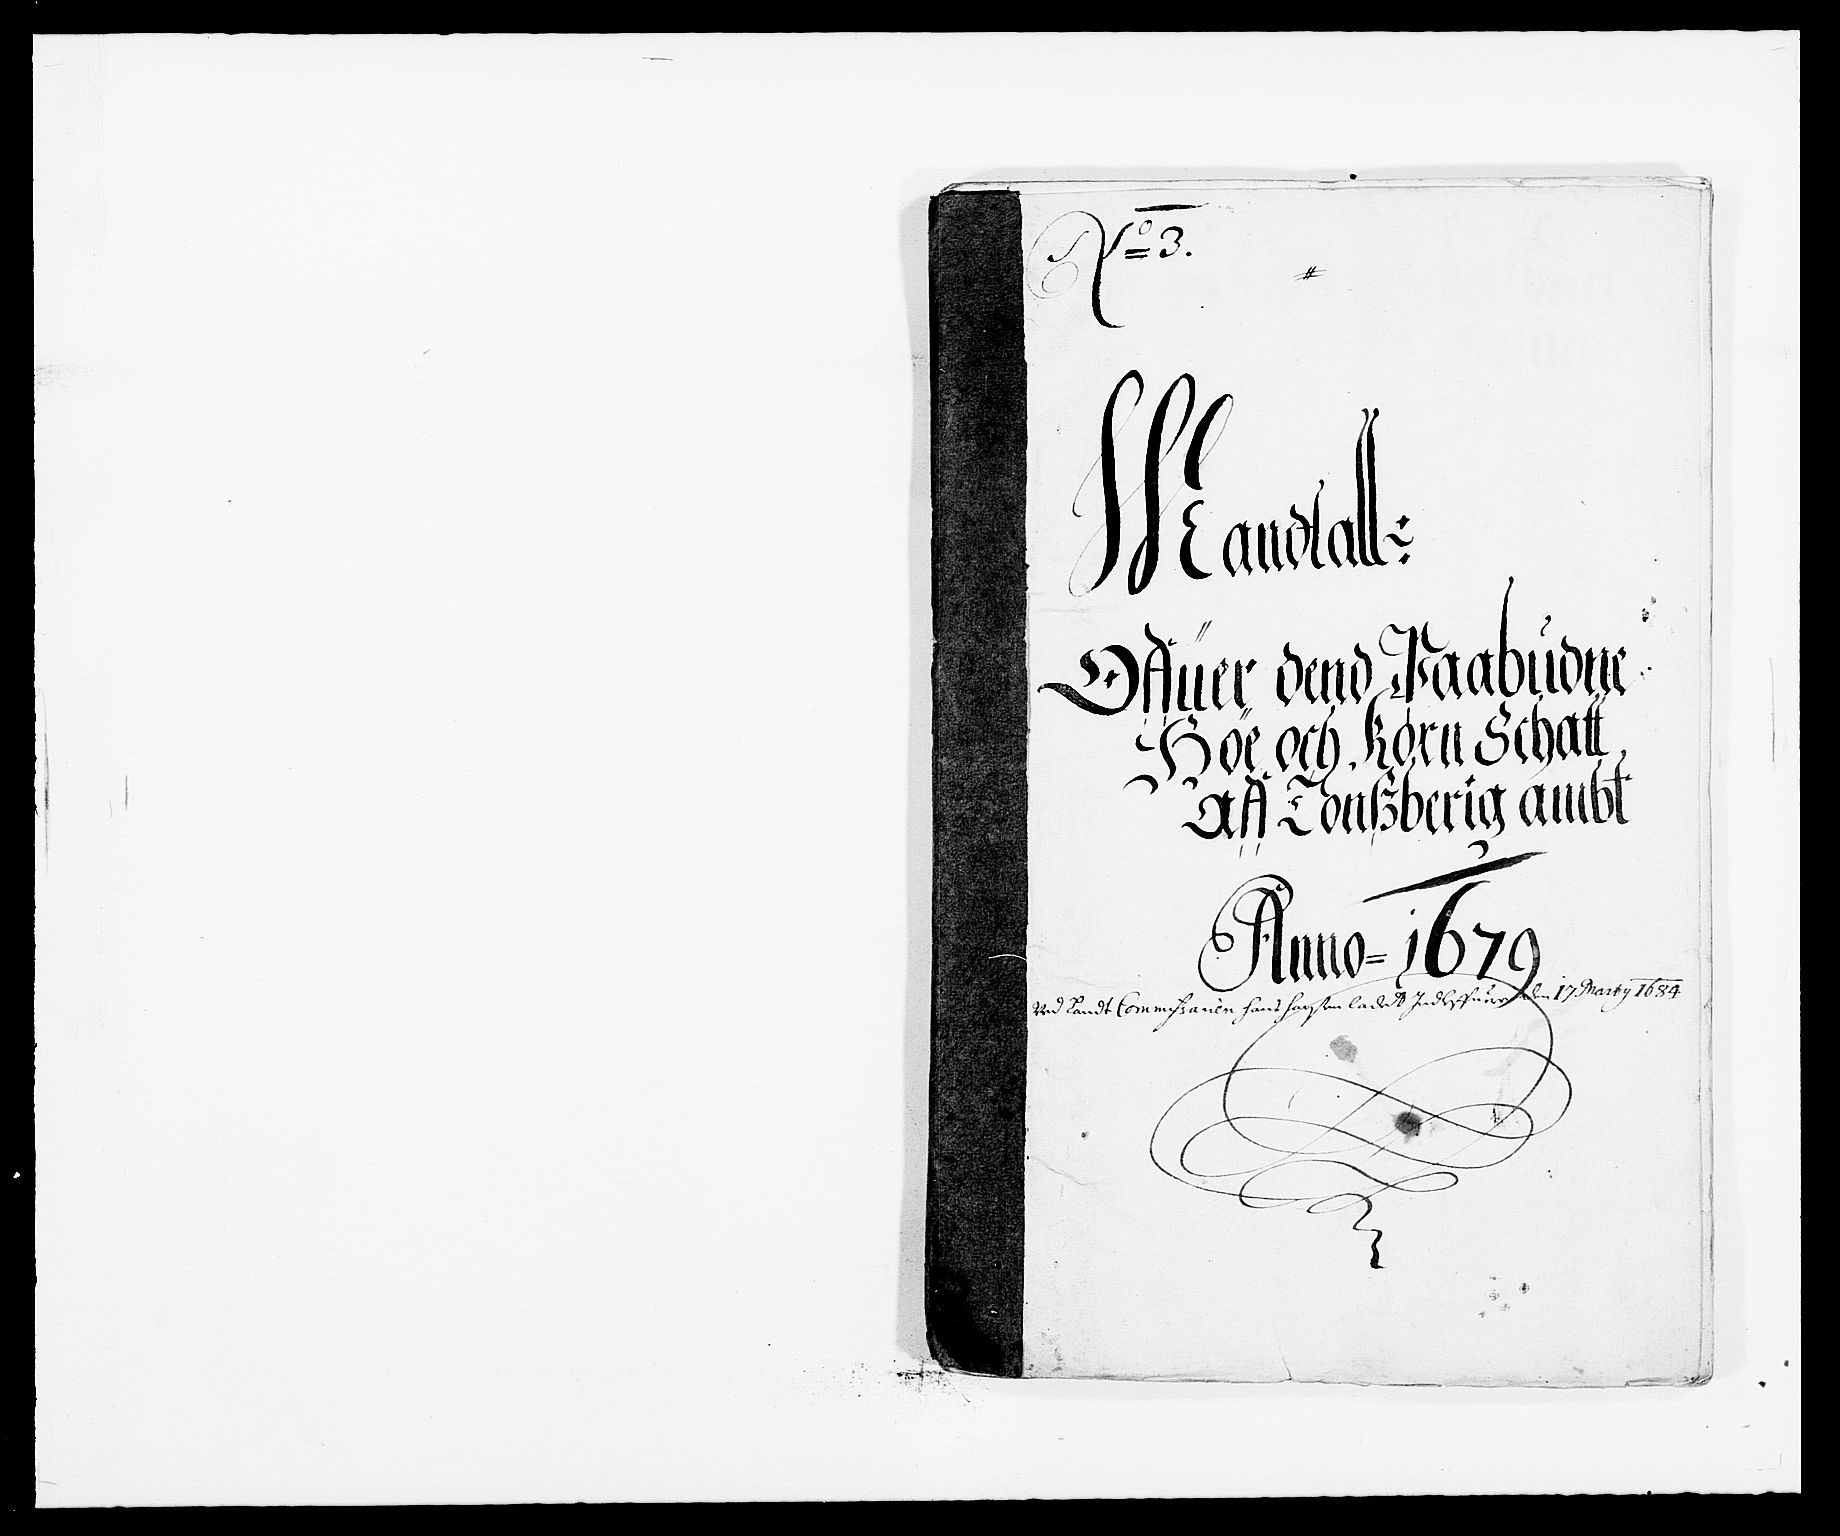 No 3.
#
Mandtall:
Offuer dend Paabudne
Höe och Korn Schatt,
aff Tonßberig ambt
Anno = 1679
Ved Landt Commissariën Hans ladet den 17 Marty 1684